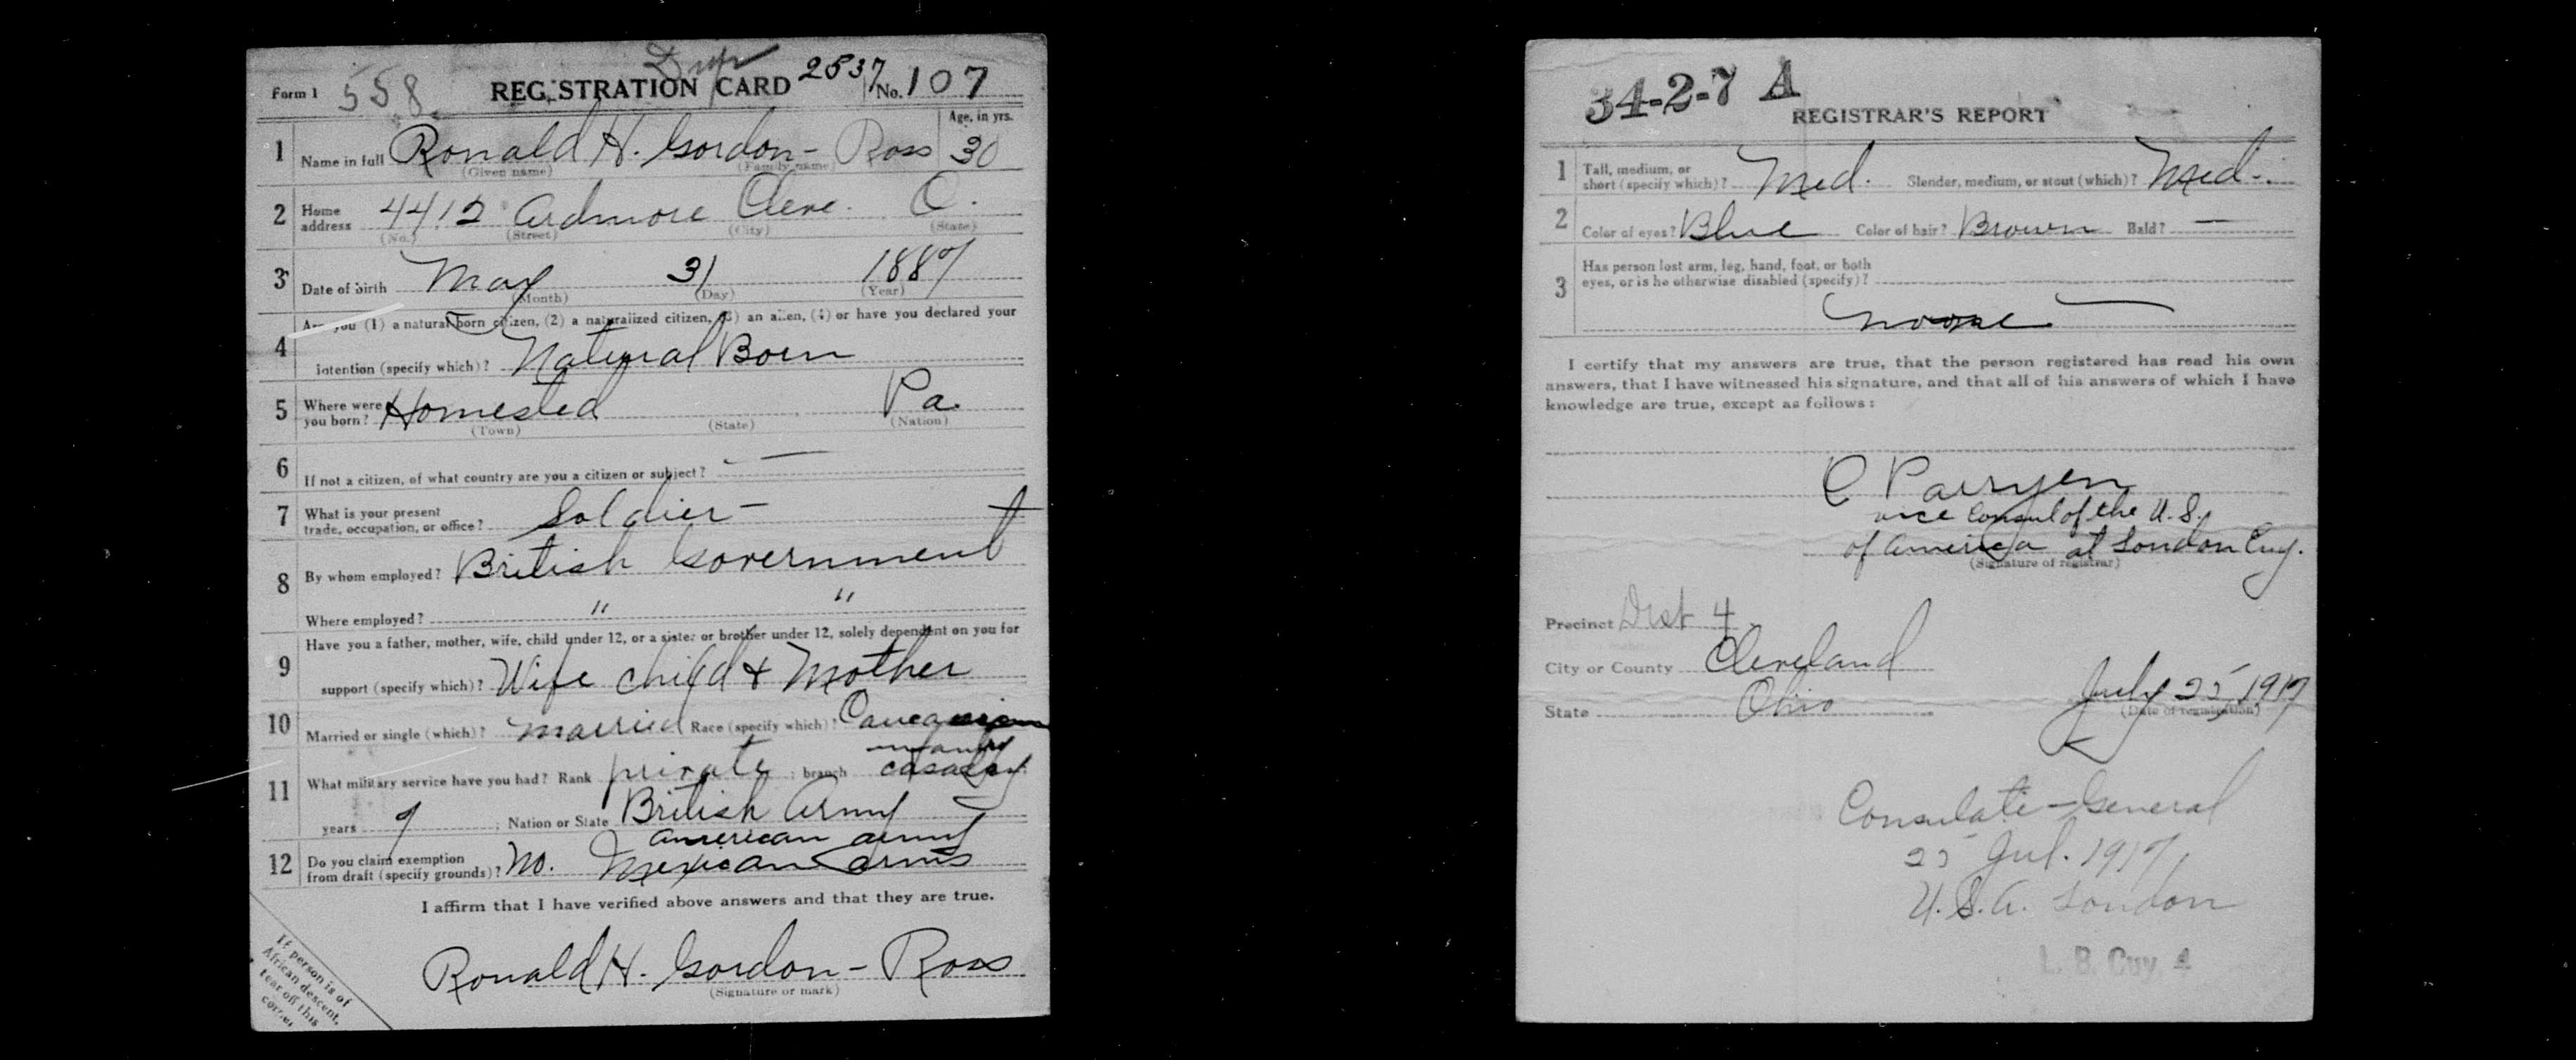 Dup
Form 1 558 REGISTRATION CARD 2537 No. 107
Age, in yrs.
1 Name in full Ronald H. Gordon- Ross 30
(Given name) (Family name)
2 Home address 4412 Ardmore Cleve. O.
(No.) (Street) (City) (State)
3 Date of birth May 31 1887
(Month) (Day) (Year)
Are you (1) a natural born citizen, (2) a naturalized citizen, (3) an alien, (4) or have you declared your
4 intention (specify which)? Natural Born
5 Where were you born? Homested Pa.
(Town) (State) (Nation)
6 If not a citizen, of what country are you a citizen or subject? —
7 What is your present trade, occupation, or office? Soldier -
8 By whom employed? British Government
Where employed? " "
Have you a father, mother, wife, child under 12, or a sister or brother under 12, solely dependent on you for
9 support (specify which)? Wife child & Mother
10 Married or single (which)? married Race (specify which)? Caucasian
infantry
11 What military service have you had? Rank private ; branch
years 9 ; Nation or State British Army
american army
12 Do you claim exemption from draft (specify grounds)? No. Mexican arms
I affirm that I have verified above answers and that they are true.
Ronald H. Gordon - Ross
(Signature or mark)
If person is of
African descent,
tear off this
corner
34-2-7 A
REGISTRAR'S REPORT
1 Tall, medium, or short (specify which)? Med. Slender, medium, or stout (which)? Med.
2 Color of eyes? Blue Color of hair? Brown Bald? —
Has person lost arm, leg, hand, foot, or both
3 eyes, or is he otherwise disabled (specify)?
none
I certify that my answers are true, that the person registered has read his own
answers, that I have witnessed his signature, and that all of his answers of which I have
knowledge are true, except as follows:
C
vice Consul of the U.S.
of America at London Eng.
(Signature of registrar)
Precinct Dist 4
City or County Cleveland
State Ohio July 25, 1917
(Date of registration)
Consulate-General
25 Jul. 1917,
U.S.A. London
L. B. Cuy 4